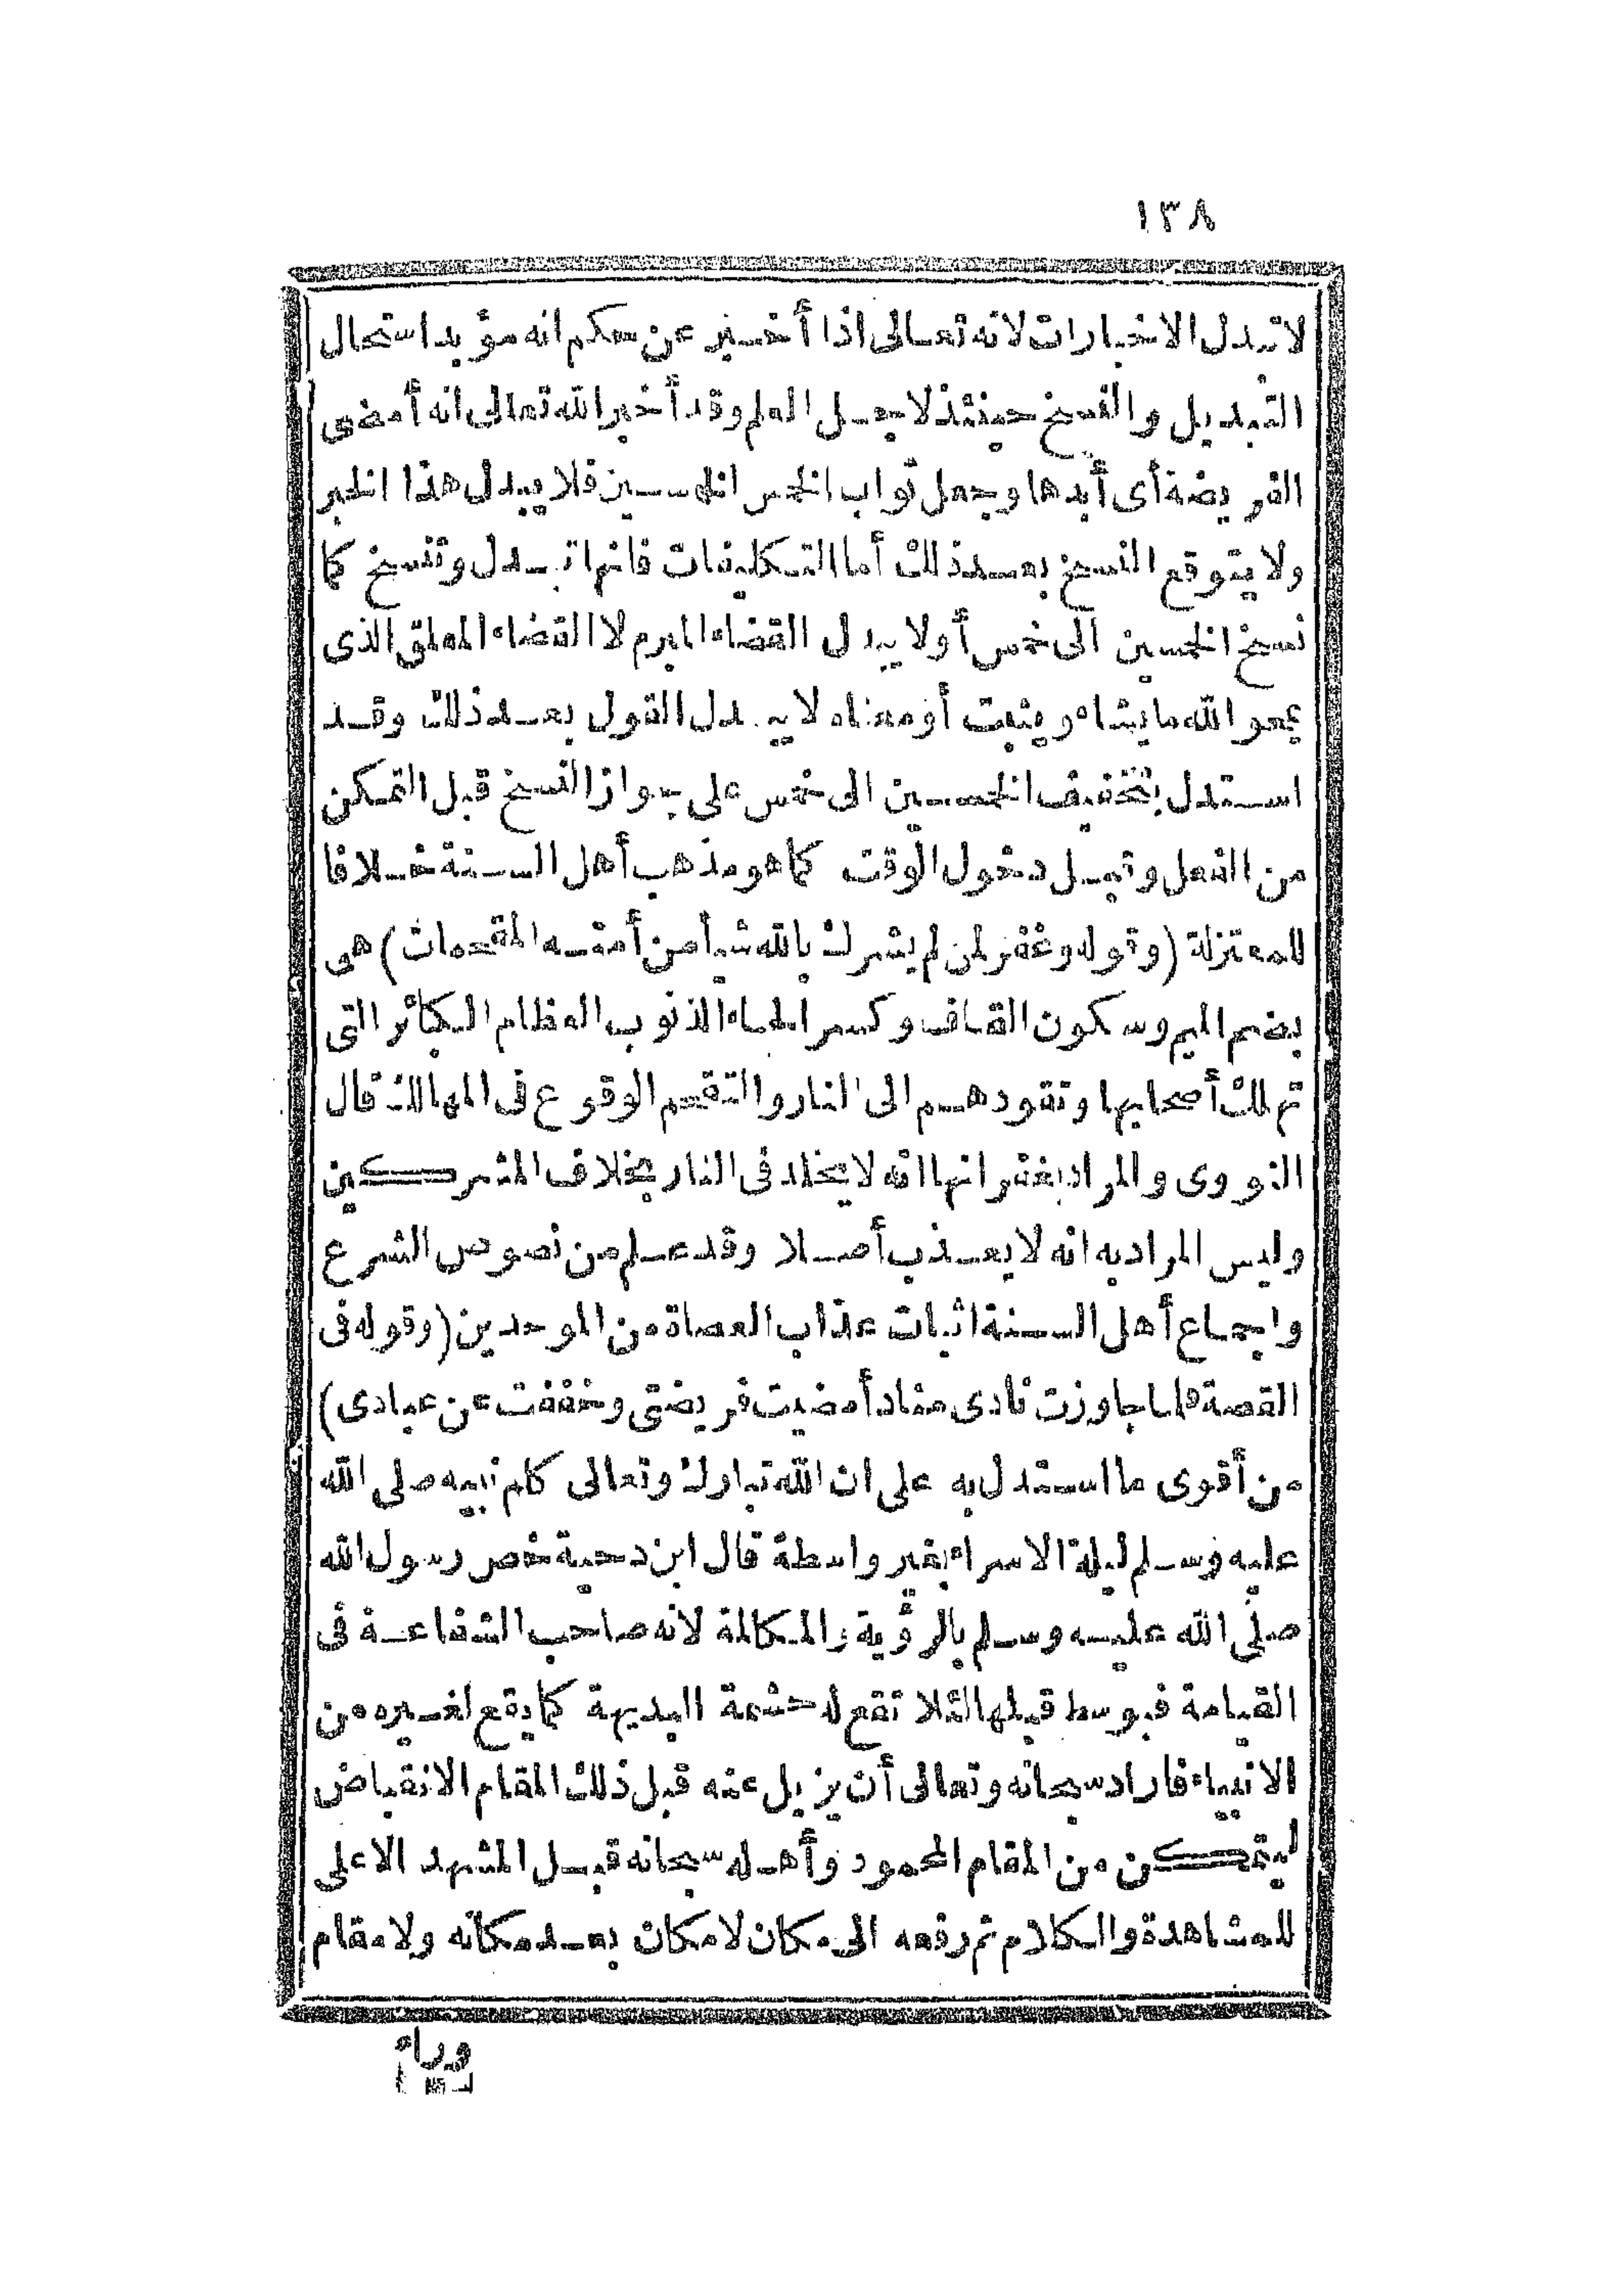 ١٣٨
لا تبدل الاخبارات لانه تعالى اذا أخبر عن حكم انه مؤبد استحال
التبديل والنسخ حينئذ لاجل العلم وقد أخبر الله تعالى انه أمضى
الفريضة أى أبدها وجعل ثواب الخمس الخمسين فلا يبدل هذا الخبر
ولا يتوقع النسخ بعد ذلك أما التكليفات فانها تبدل وتنسخ كما
نسخ الخمسين الى خمس أو لا يبدل القضاء المبرم لا القضاء المعلق الذى
يمحو الله ما يشاء ويثبت أو معناه لا يبدل القول بعد ذلك وقد
استدل بتخفيف الخمسين الى خمس على جواز النسخ قبل التمكن
من الفعل وقبل دخول الوقت كما هو مذهب أهل السنة خلافا
للمعتزلة (وقوله وغفر لمن لم يشرك بالله شيأ من أمته المقحمات) هى
بضم الميم وسكون القاف وكسر الحاء الذنوب العظام الكبائر التى
تهلك أصحابها وتقودهم الى النار والتقحم الوقوع فى المهالك قال
النووى والمراد بغفرانها انه لا يخلد فى النار بخلاف المشركين
وليس المراد به انه لا يعذب أصلا وقد علم من نصوص الشرع
واجماع أهل السنة اثبات عذاب العصاة من الموحدين (وقوله فى
القصة فلما جاوزت نادى مناد أمضيت فريضتى وخففت عن عبادى)
من أقوى ما استدل به على ان الله تبارك وتعالى كلم نبيه صلى الله
عليه وسلم ليلة الاسراء بغير واسطة قال ابن دحية خص رسول الله
صلى الله عليه وسلم بالرؤية والمكالمة لانه صاحب الشفاعة فى
القيامة فبوسط قبلها لئلا تقع له حشمة البديهة كما يقع لغيره من
الانبياء فاراد سبحانه وتعالى أن يزيل عنه قبل ذلك المقام الانقباض
ليتمكن من المقام المحمود وأهله سبحانه قبل المشهد الاعلى
للمشاهدة والكلام ثم رفعه الى مكان لا مكان بعد مكانه ولا مقام
وراء